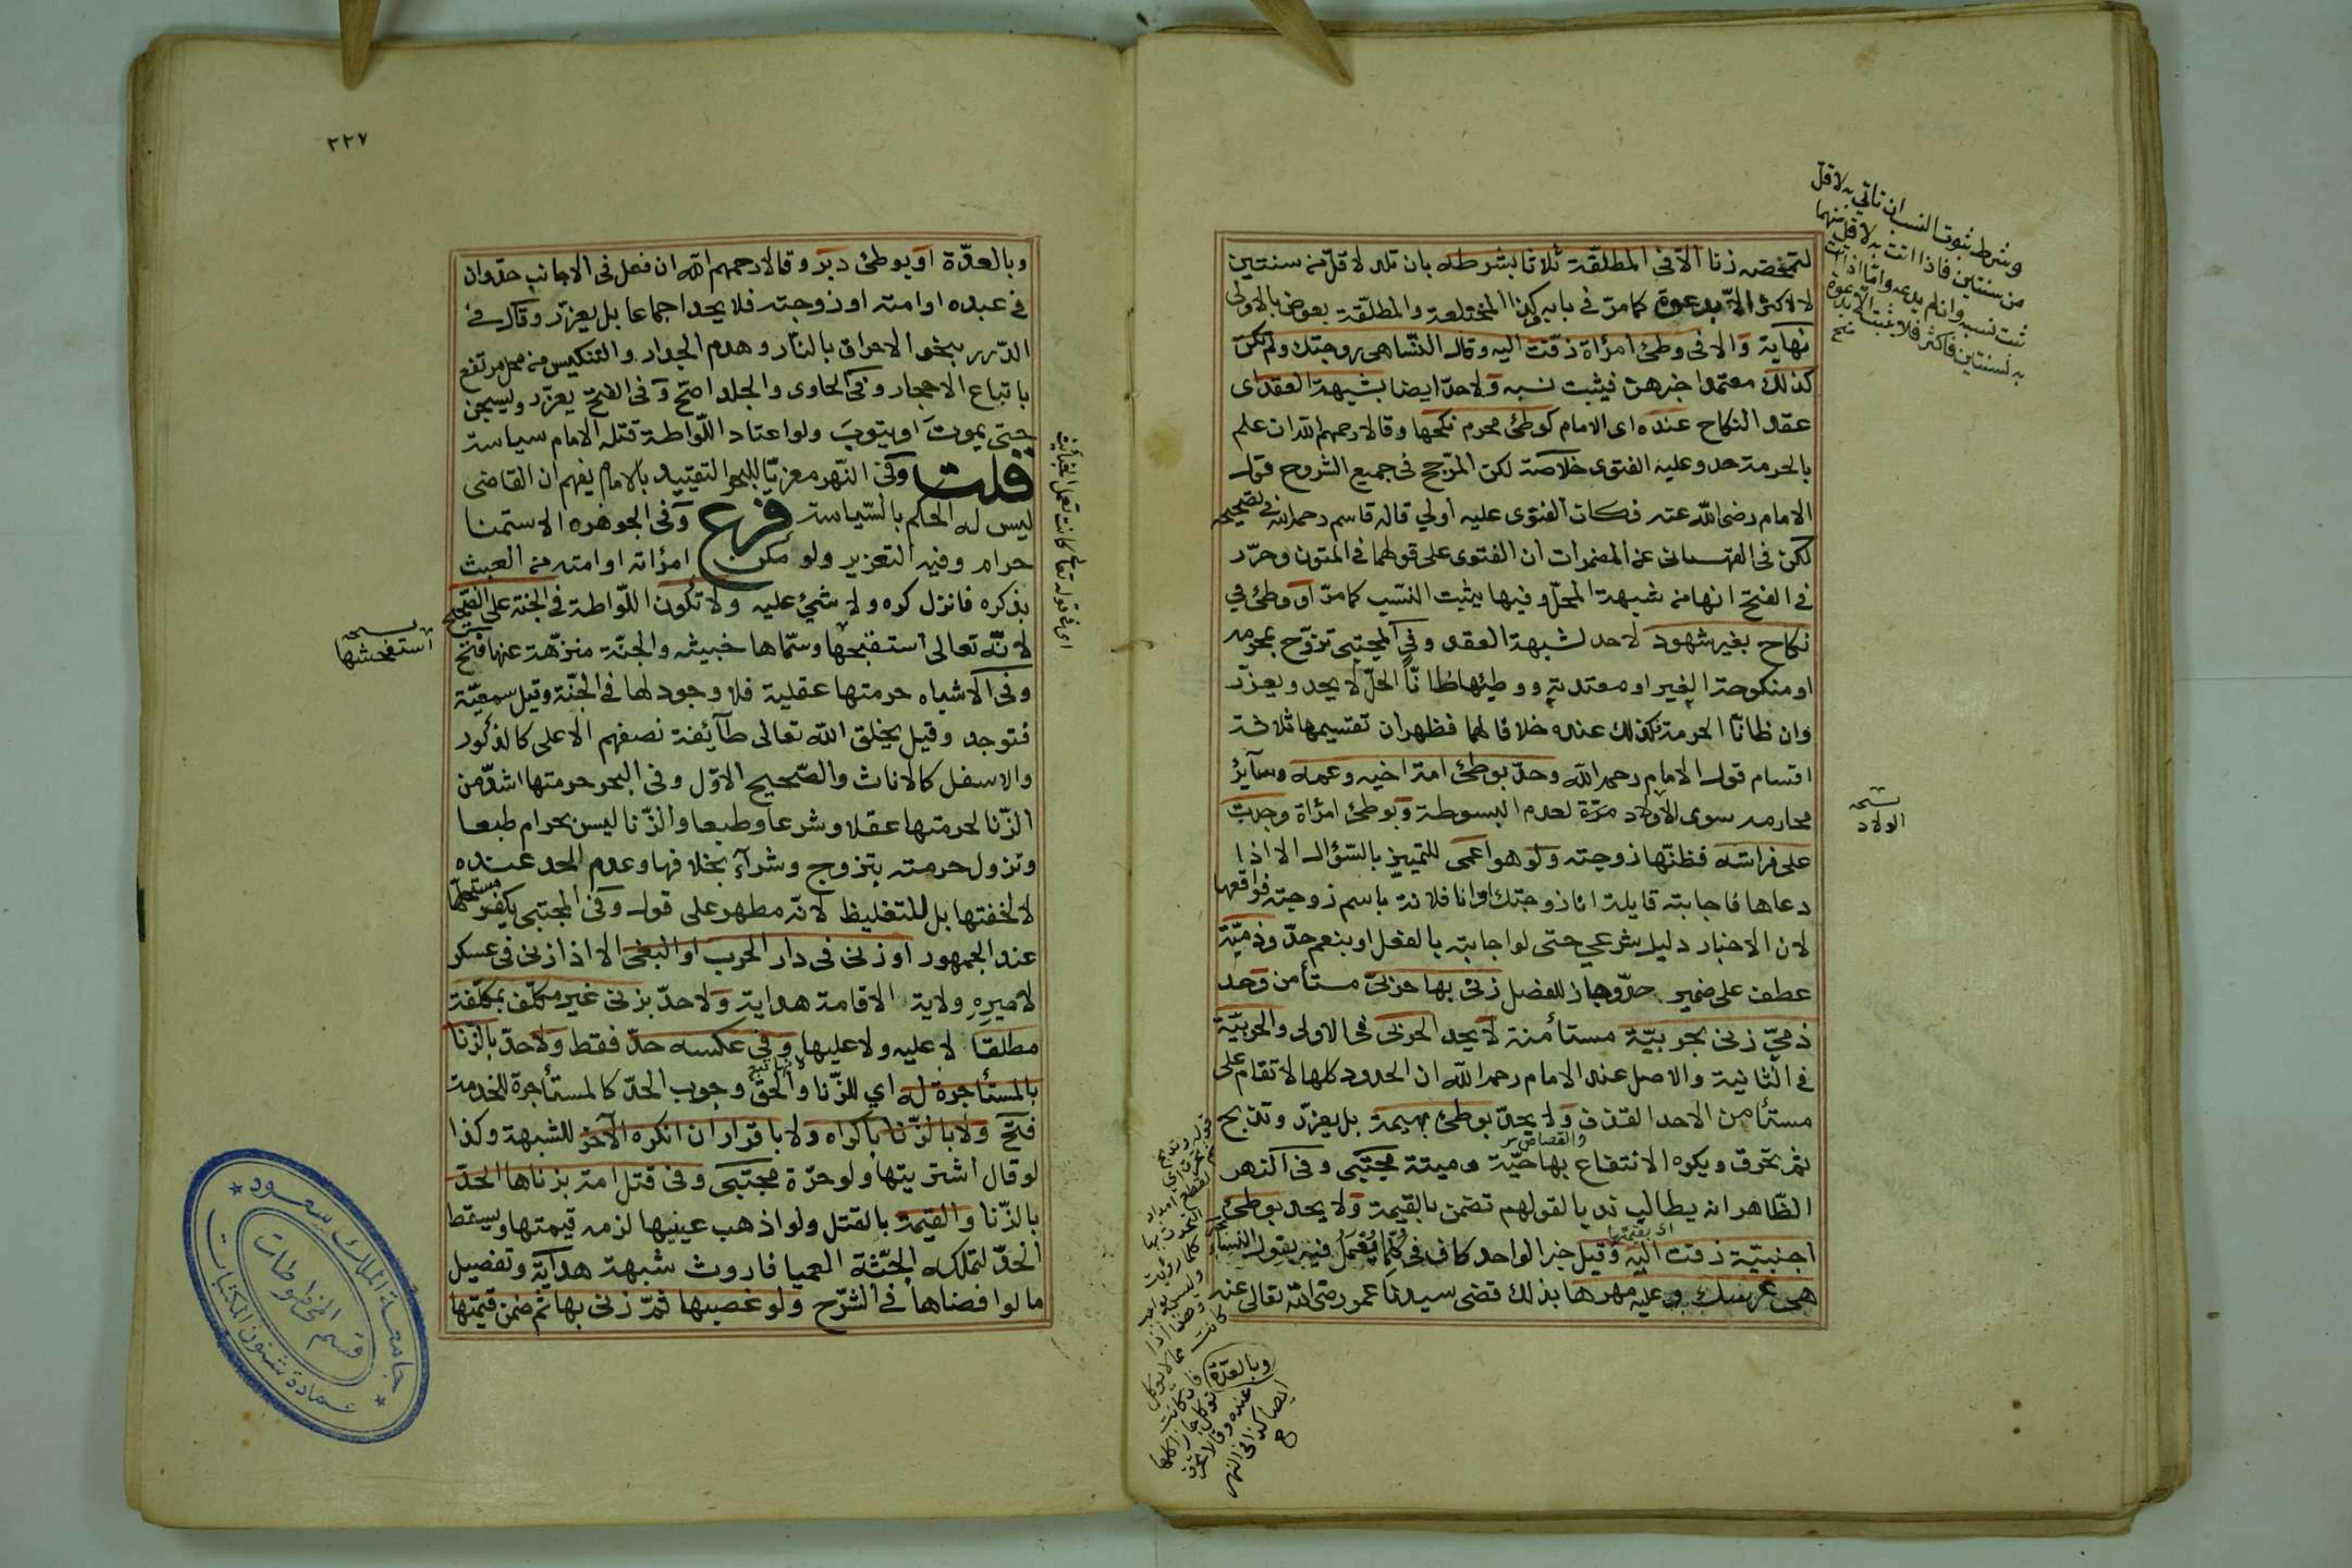 لتمحضه زنا الا فى المطلقة ثلاثا بشرطه بان تلد لاقل من سنتين
لا لاكثر الا بدعوة كما مر فى بابه وكذا المختلعة والمطلقة بعوض بالاولى
نهاية والا فى وطئ امرأة زفت اليه وقال النسا هى زوجتك ولم تكن
كذلك معتمدا خبرهن فيثبت نسبه ولا حد ايضا بشبهة العقد اى
عقد النكاح عنده اى الامام كوطئ محرم نكحها وقالا رحمهم الله ان علم
بالحرمة حد وعليه الفتوى خلاصة لكن المرجح فى جميع الشروح قول
الامام رضى الله عنه فكان الفتوى عليه أولي قاله قاسم رحمه الله فى تصحيحه
لكن فى القهستانى عن المضمرات ان الفتوى على قولهما فى المتون وحرر
فى الفتح انها من شبهة المحل وفيها يثبت النسب كما مر او وطئ في
نكاح بغير شهود لا حد لشبهة العقد وفى المجتبى تزوج بمحرمه
او منكوحة الغير او معتدته ووطيئها ظانا الحل لا يحد ويعزر
وان ظانا الحرمة فكذلك عنده خلافا لهما فظهر ان تقسيمها ثلاثة
اقسام قول الامام رحمه الله وحد بوطئ امة اخيه وعمه وسآئر
محارمه سوى الاولاد مرة لعدم البسوطة وبوطئ امرأة وجدت
على فراشه فظنها زوجته ولو هو اعمى للتمييز بالسؤال الا اذا
دعاها فاجابته قايلة انا زوجتك او انا فلانة باسم زوجته فواقعها
لان الاخبار دليل شرعي حتى لو اجابته بالفعل او بنعم حد وذمية
عطف على ضمير حد وجاز للفصل زنى بها حربى مستأمن وحد
ذمي زنى بحربية مستأمنة لا يحد الحربى فى الاولى والحربية
فى الثانية والاصل عند الامام رحمه الله ان الحدود كلها لا تقام على
مستأمن الا حد القذف ولا يحد بوطئ بهيمة بل يعزر وتذبح
ثم تحرق ويكره الانتفاع بها حية وميتة مجتبى وفى النهر
الظاهر انه يطالب ندبا لقولهم تضمن بالقيمة ولا يحد بوطئ
اجنبية زفت اليه وقيل خبر الواحد كاف فى كلما يعمل فيه بقول النساء
هى عرسك وعليه مهرها بذلك قضى سيدنا عمر رضى الله تعالى عنه
وشرط ثبوت النسب ان تاتي به لاقل
من سنتين فاذا اتت به لاقل منهما
ثبت نسبه وان لم يدعه واما اذا اتت
به لسنتين فاكثر فلا يثبت الا بدعوة
نسخه
الولاد
والقصاص
اى بقيمتها
وبالعدة
٢٢٧
وبالعدة او بوطئ دبر وقالا رحمهم الله ان فعل فى الاجانب حد وان
فى عبده او امته او زوجته فلا يحد اجماعا بل يعزر وقال فى
الدرر بنحو الاحراق بالنار وهدم الجدار والتنكيس من محل مرتفع
باتباع الاحجار وفى الحاوى والجلد اصح وفى الفتح يعزر ويسجن
حتى يموت او يتوب ولو اعتاد اللواطة قتله الامام سياسة
قلت وفى النهر معزيا للبحر التقييد بالامام يفهم ان القاضى
ليس له الحكم بالسياسة فرع وفى الجوهره الاستمنا
حرام وفيه التعزير ولو مكن امرأته او امته من العبث
بذكره فانزل كره ولا شئ عليه ولا تكون اللواطة فى الجنة على الصحيح
لانه تعالى استقبحها وسماها خبيثه والجنة منزهة عنها فتح
وفى الاشباه حرمتها عقلية فلا وجود لها فى الجنة وقيل سمعية
فتوجد وقيل يخلق الله تعالى طآئفة نصفهم الاعلى كالذكور
والاسفل كالاناث والصحيح الاول وفى البحر حرمتها اشد من
الزنا لحرمتها عقلا وشرعا وطبعا والزنا ليس بحرام طبعا
وتزول حرمته بتزوج وشرآء بخلافها وعدم الحد عنده
لا لخفتها بل للتغليظ لانه مطهر على قول وفى المجتبى يكفر مستحلها
عند الجمهور او زنى فى دار الحرب او البغى الا اذا زنى فى عسكر
لاميره ولاية الاقامة هداية ولا حد بزنى غير مكلف بمكلفة
مطلقا لا عليه ولا عليها وفى عكسه حد فقط ولا حد بالزنا
بالمستأجرة له اي للزنا والحق وجوب الحد كالمستأجرة للخدمة
فتح ولا بالزنا باكراه ولا باقرار ان انكره الآخر للشبهة وكذا
لو قال اشتريتها ولو حرة مجتبى وفى قتل امة بزناها الحد
بالزنا والقيمة بالقتل ولو اذهب عينيها لزمه قيمتها ويسقط
الحد لتملكه الجثة العميا فاروث شبهة هداية وتفصيل
ما لو افضاها فى الشرح ولو غصبها ثم زنى بها ثم ضمن قيمتها
اى فى قوله تعالى كانت تعمل الخبائث
نسخه
استفحشها
جامعة الملك سعود
قسم المخطوطات
عمادة شئون المكتبات